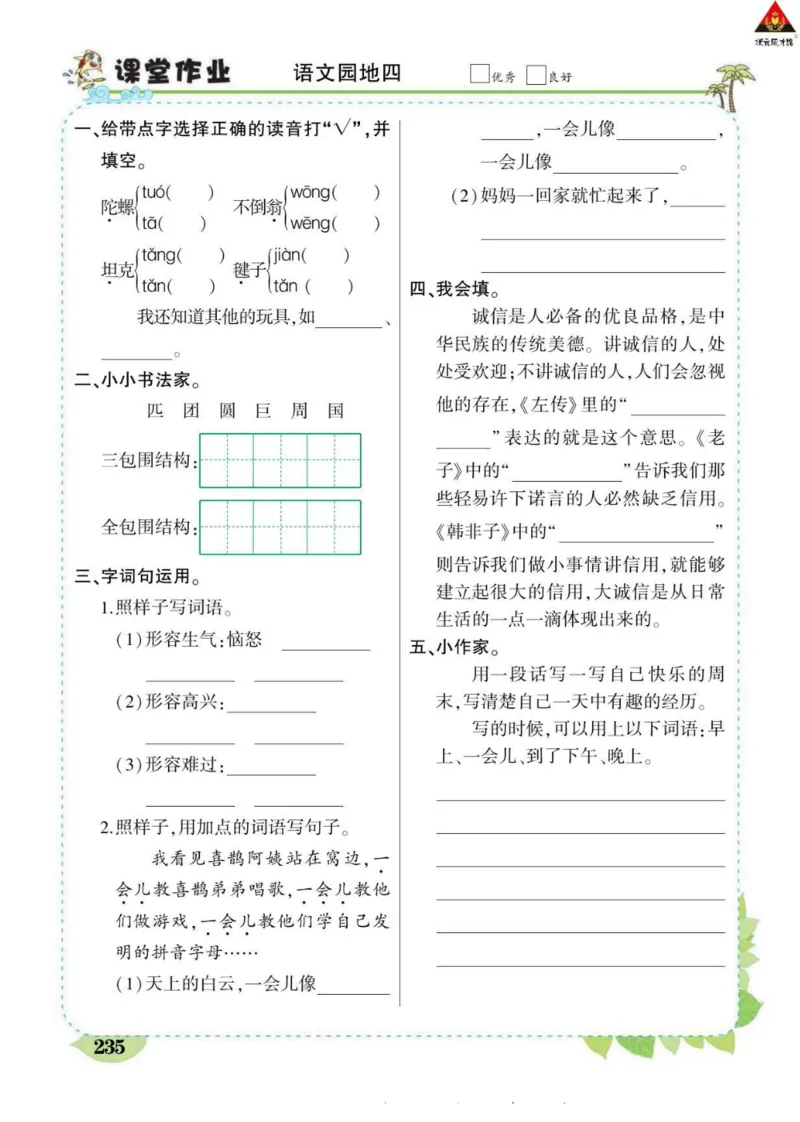 状元成才路
课堂作业 语文园地四 □优秀 □良好
一、给带点字选择正确的读音打“√”,并
填空。
陀螺{tuó( ) tā( ) 不倒翁{wōng( ) wēng( )
坦克{tǎng( ) tǎn( ) 毽子{jiàn( ) tǎn ( )
我还知道其他的玩具,如________、
________。
二、小小书法家。
匹 团 圆 巨 周 国
三包围结构:
全包围结构:
三、字词句运用。
1.照样子写词语。
(1)形容生气:恼怒 ________
________ ________
(2)形容高兴:________
________ ________
(3)形容难过:________
________ ________
2.照样子,用加点的词语写句子。
我看见喜鹊阿姨站在窝边,一
会儿教喜鹊弟弟唱歌,一会儿教他
们做游戏,一会儿教他们学自己发
明的拼音字母……
(1)天上的白云,一会儿像________
______,一会儿像____________,
一会儿像______________。
(2)妈妈一回家就忙起来了,______
____________________________
____________________________
四、我会填。
诚信是人必备的优良品格,是中
华民族的传统美德。讲诚信的人,处
处受欢迎;不讲诚信的人,人们会忽视
他的存在,《左传》里的“__________
______”表达的就是这个意思。《老
子》中的“____________”告诉我们那
些轻易许下诺言的人必然缺乏信用。
《韩非子》中的“________________”
则告诉我们做小事情讲信用,就能够
建立起很大的信用,大诚信是从日常
生活的一点一滴体现出来的。
五、小作家。
用一段话写一写自己快乐的周
末,写清楚自己一天中有趣的经历。
写的时候,可以用上以下词语:早
上、一会儿、到了下午、晚上。
235